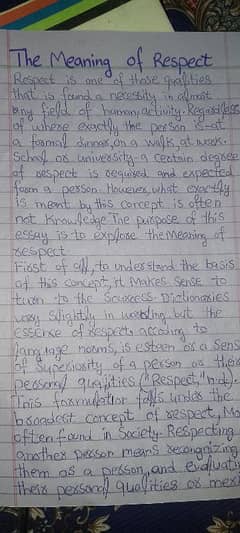 The Meaning of Respect
Respect is one of those qualities
that is found a necessity in almost
any field of human activity. Regardless
of where exactly the person is-at
a formal dinner, on a walk, at work.
School or university-a certain degree
of respect is required and expected
from a person. However, what exactly
is meant by this concept is often
not Knowledge The purpose of this
essay is to explore the Meaning of
respect
First of all, to understand the basis
of this concept, it Makes Sense to
turn to the Sources. Dictionaries
vary slightly in wording, but the
essence of respect, according to
language norms, is esteem or a Sens
of Superiosity of a person or their
personal qualities ("Respect," n.d).
This formulation falls under the
broadest concept of respect, Mo
often found in Society. Respecting
another person means recongnizing
them as a person, and evaluati
their personal qualities or meri